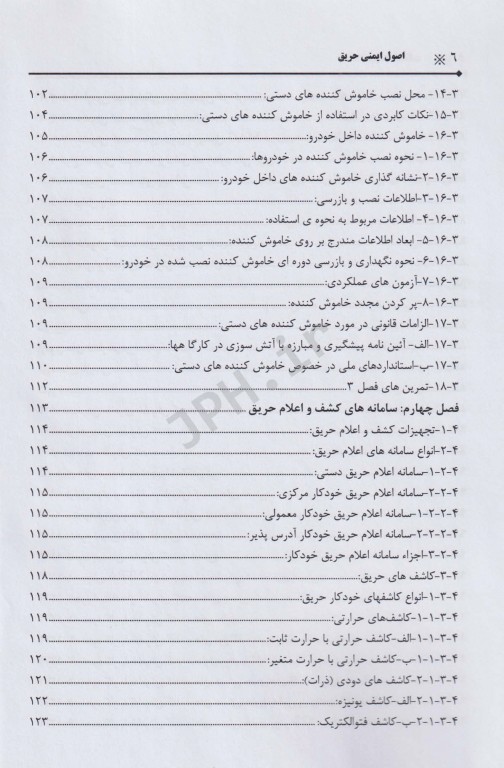 ۶ ※ اصول ایمنی حریق
۳-۱۴- محل نصب خاموش کننده های دستی: ۱۰۲
۳-۱۵-نکات کاربردی در استفاده از خاموش کننده های دستی: ۱۰۴
۳-۱۶- خاموش کننده داخل خودرو: ۱۰۵
۳-۱۶-۱- نحوه نصب خاموش کننده در خودروها: ۱۰۶
۳-۱۶-۲-نشانه گذاری خاموش کننده های داخل خودرو: ۱۰۶
۳-۱۶-۳-اطلاعات نصب و بازرسی: ۱۰۷
۳-۱۶-۴- اطلاعات مربوط به نحوه ی استفاده: ۱۰۷
۳-۱۶-۵- ابعاد اطلاعات مندرج بر روی خاموش کننده: ۱۰۸
۳-۱۶-۶- نحوه نگهداری و بازرسی دوره ای خاموش کننده نصب شده در خودرو: ۱۰۸
۳-۱۶-۷-آزمون های عملکردی: ۱۰۹
۳-۱۶-۸-پر کردن مجدد خاموش کننده: ۱۰۹
۳-۱۷-الزامات قانونی در مورد خاموش کننده های دستی: ۱۰۹
۳-۱۷-الف- آئین نامه پیشگیری و مبارزه با آتش سوزی در کارگا هها: ۱۰۹
۳-۱۷-ب-استانداردهای ملی در خصوص خاموش کننده های دستی: ۱۱۰
۳-۱۸-تمرین های فصل ۳ ۱۱۲
فصل چهارم: سامانه های کشف و اعلام حریق ۱۱۳
۴-۱-تجهیزات کشف و اعلام حریق: ۱۱۴
۴-۲-انواع سامانه های اعلام حریق: ۱۱۴
۴-۲-۱-سامانه اعلام حریق دستی: ۱۱۴
۴-۲-۲-سامانه اعلام حریق خودکار مرکزی: ۱۱۵
۴-۲-۲-۱-سامانه اعلام حریق خودکار معمولی: ۱۱۵
۴-۲-۲-۲-سامانه اعلام حریق خودکار آدرس پذیر: ۱۱۵
۴-۲-۳-اجزاء سامانه اعلام حریق خودکار: ۱۱۵
۴-۳-کاشف های حریق: ۱۱۸
۴-۳-۱-انواع کاشفهای خودکار حریق: ۱۱۹
۴-۳-۱-۱-کاشف‌های حرارتی: ۱۱۹
۴-۳-۱-۱-الف-کاشف حرارتی با حرارت ثابت: ۱۱۹
۴-۳-۱-۱-ب-کاشف حرارتی با حرارت متغیر: ۱۲۰
۴-۳-۱-۲-کاشف های دودی (ذرات): ۱۲۱
۴-۳-۱-۲-الف-کاشف یونیزه: ۱۲۲
۴-۳-۱-۲-ب-کاشف فتوالکتریک: ۱۲۳
JPH.ir